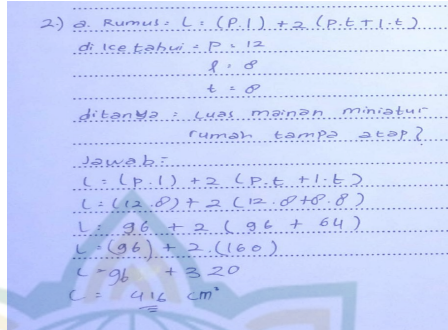 2.) a. Rumus : L = (P.l) + 2 (P.t + l.t)
diketahui = P = 12
l = 8
t = 8
ditanya : Luas mainan miniatur
rumah tampa atap?
Jawab =
L = (P.l) + 2 (P.t + l.t)
L = (12.8) + 2 (12.8+8.8)
L = 96 + 2 (96 + 64)
L = (96) + 2.(160)
L = 96 + 320
L = 416 cm²